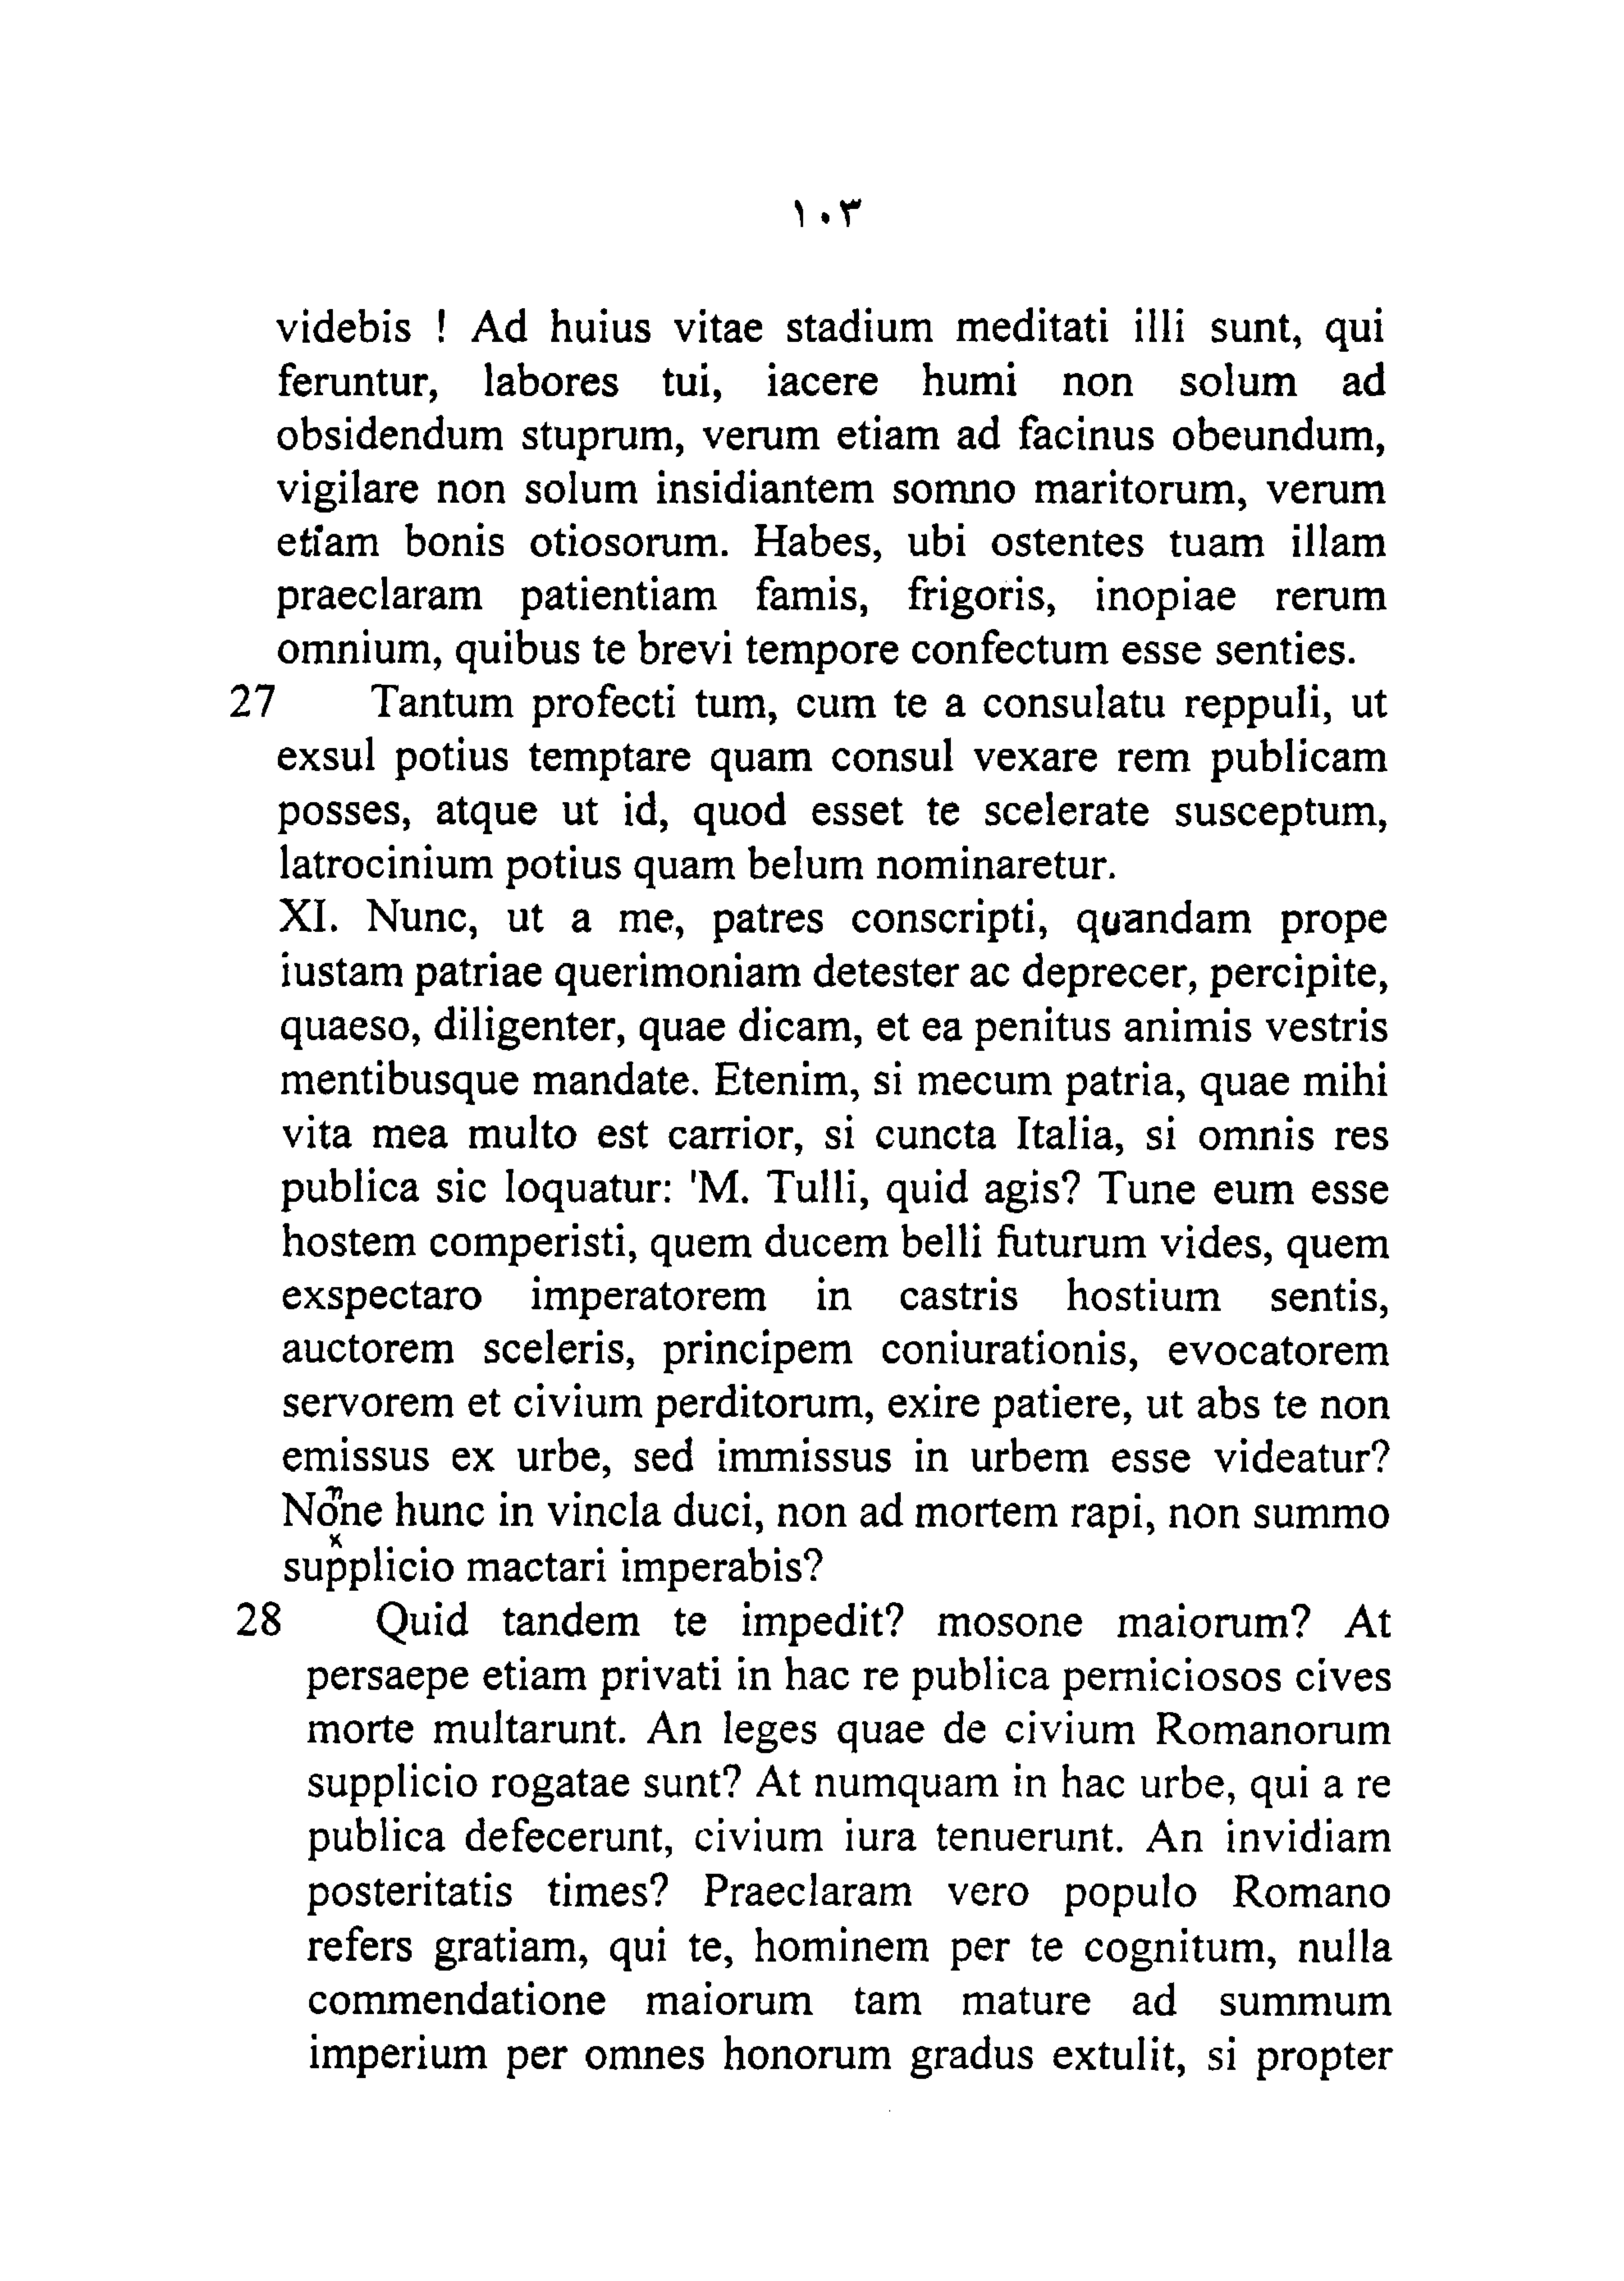 ١٠٣
videbis ! Ad huius vitae stadium meditati illi sunt, qui
feruntur, labores tui, iacere humi non solum ad
obsidendum stuprum, verum etiam ad facinus obeundum,
vigilare non solum insidiantem somno maritorum, verum
etiam bonis otiosorum. Habes, ubi ostentes tuam illam
praeclaram patientiam famis, frigoris, inopiae rerum
omnium, quibus te brevi tempore confectum esse senties.
27 Tantum profecti tum, cum te a consulatu reppuli, ut
exsul potius temptare quam consul vexare rem publicam
posses, atque ut id, quod esset te scelerate susceptum,
latrocinium potius quam belum nominaretur.
XI. Nunc, ut a me, patres conscripti, quandam prope
iustam patriae querimoniam detester ac deprecer, percipite,
quaeso, diligenter, quae dicam, et ea penitus animis vestris
mentibusque mandate. Etenim, si mecum patria, quae mihi
vita mea multo est carrior, si cuncta Italia, si omnis res
publica sic loquatur: 'M. Tulli, quid agis? Tune eum esse
hostem comperisti, quem ducem belli futurum vides, quem
exspectaro imperatorem in castris hostium sentis,
auctorem sceleris, principem coniurationis, evocatorem
servorem et civium perditorum, exire patiere, ut abs te non
emissus ex urbe, sed immissus in urbem esse videatur?
None hunc in vincla duci, non ad mortem rapi, non summo
supplicio mactari imperabis?
28 Quid tandem te impedit? mosone maiorum? At
persaepe etiam privati in hac re publica perniciosos cives
morte multarunt. An leges quae de civium Romanorum
supplicio rogatae sunt? At numquam in hac urbe, qui a re
publica defecerunt, civium iura tenuerunt. An invidiam
posteritatis times? Praeclaram vero populo Romano
refers gratiam, qui te, hominem per te cognitum, nulla
commendatione maiorum tam mature ad summum
imperium per omnes honorum gradus extulit, si propter